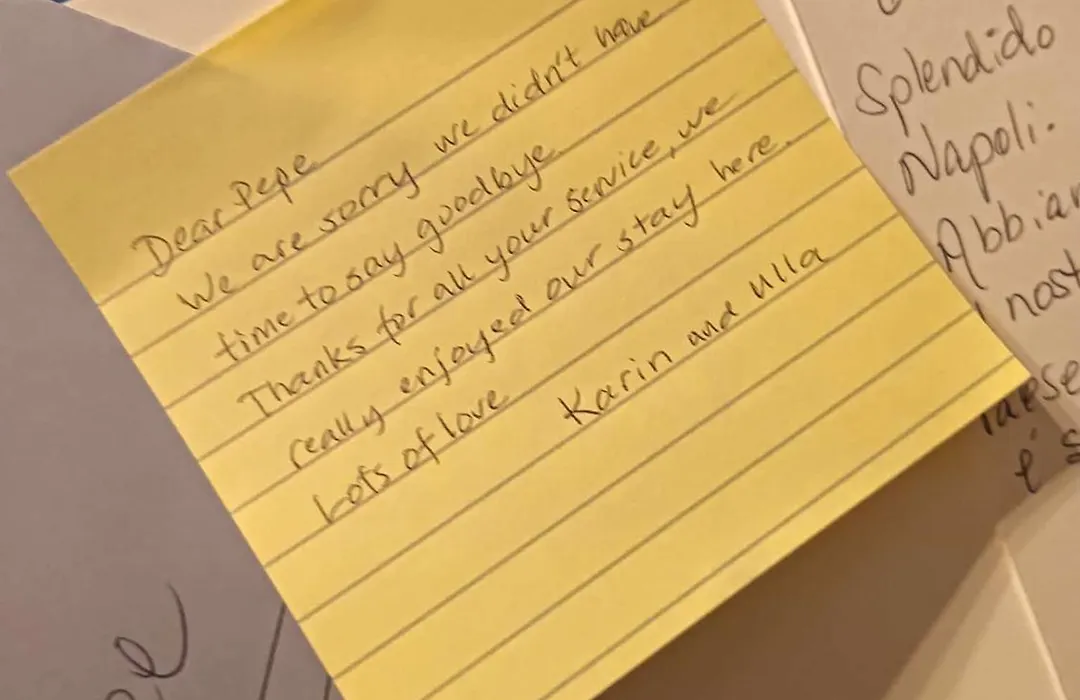 Dear Pepe
We are sorry we didn't have
time to say goodbye.
Thanks for all your service, we
really enjoyed our stay here.
Lots of love
Karin and Ulla
Splendido
Napoli.